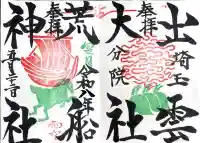 出雲
奉拝
埼玉
大社
分院
荒船
奉拝
令和八年
神社